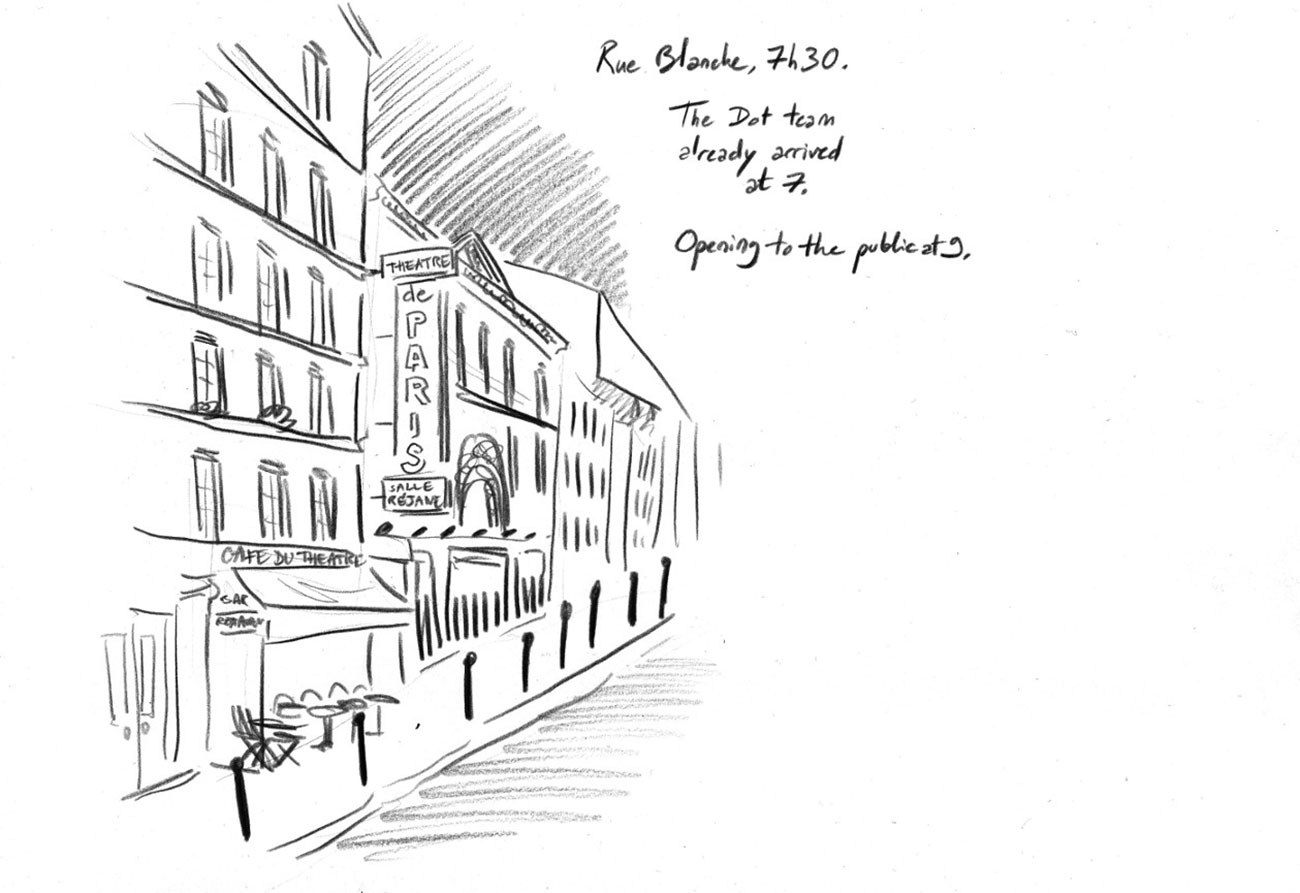 Rue Blanche, 7h30.
The Dot team
already arrived
at 7.
Opening to the public at 9.
THEATRE
de
PARIS
SALLE
RÉJANE
CAFE DU THEATRE
BAR